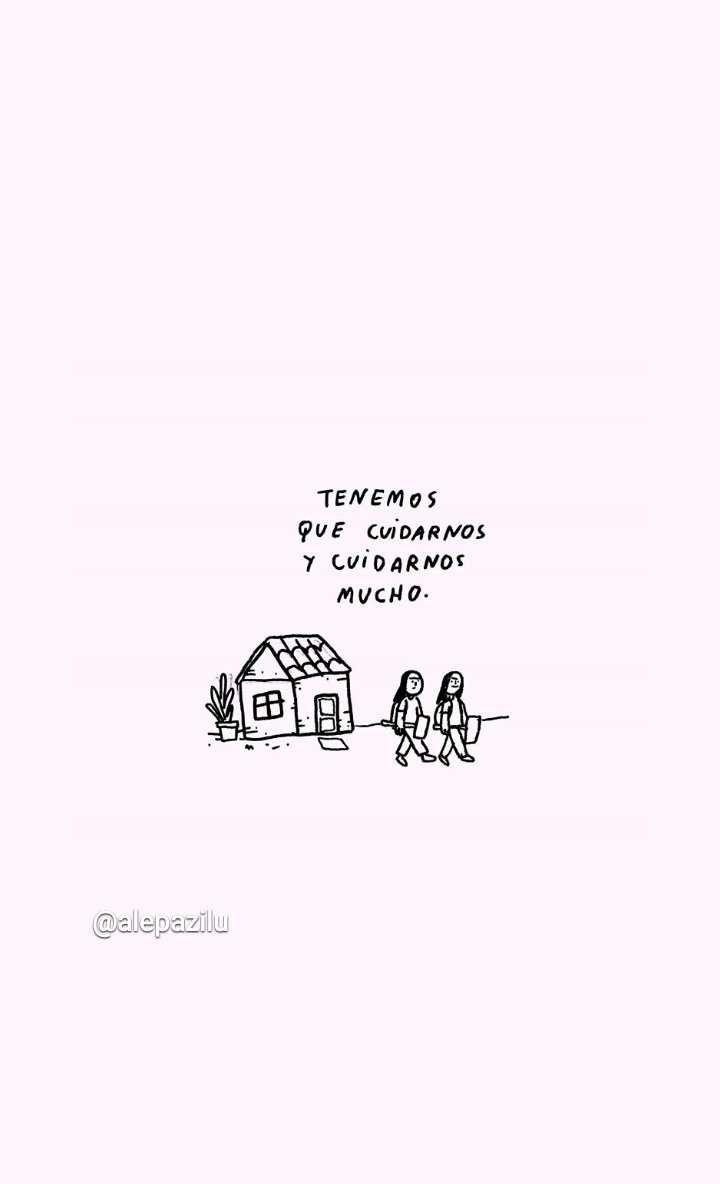 TENEMOS
QUE CUIDARNOS
Y CUIDARNOS
MUCHO.
@alepazilu